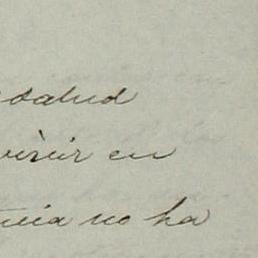 salud
vivir en
no ha